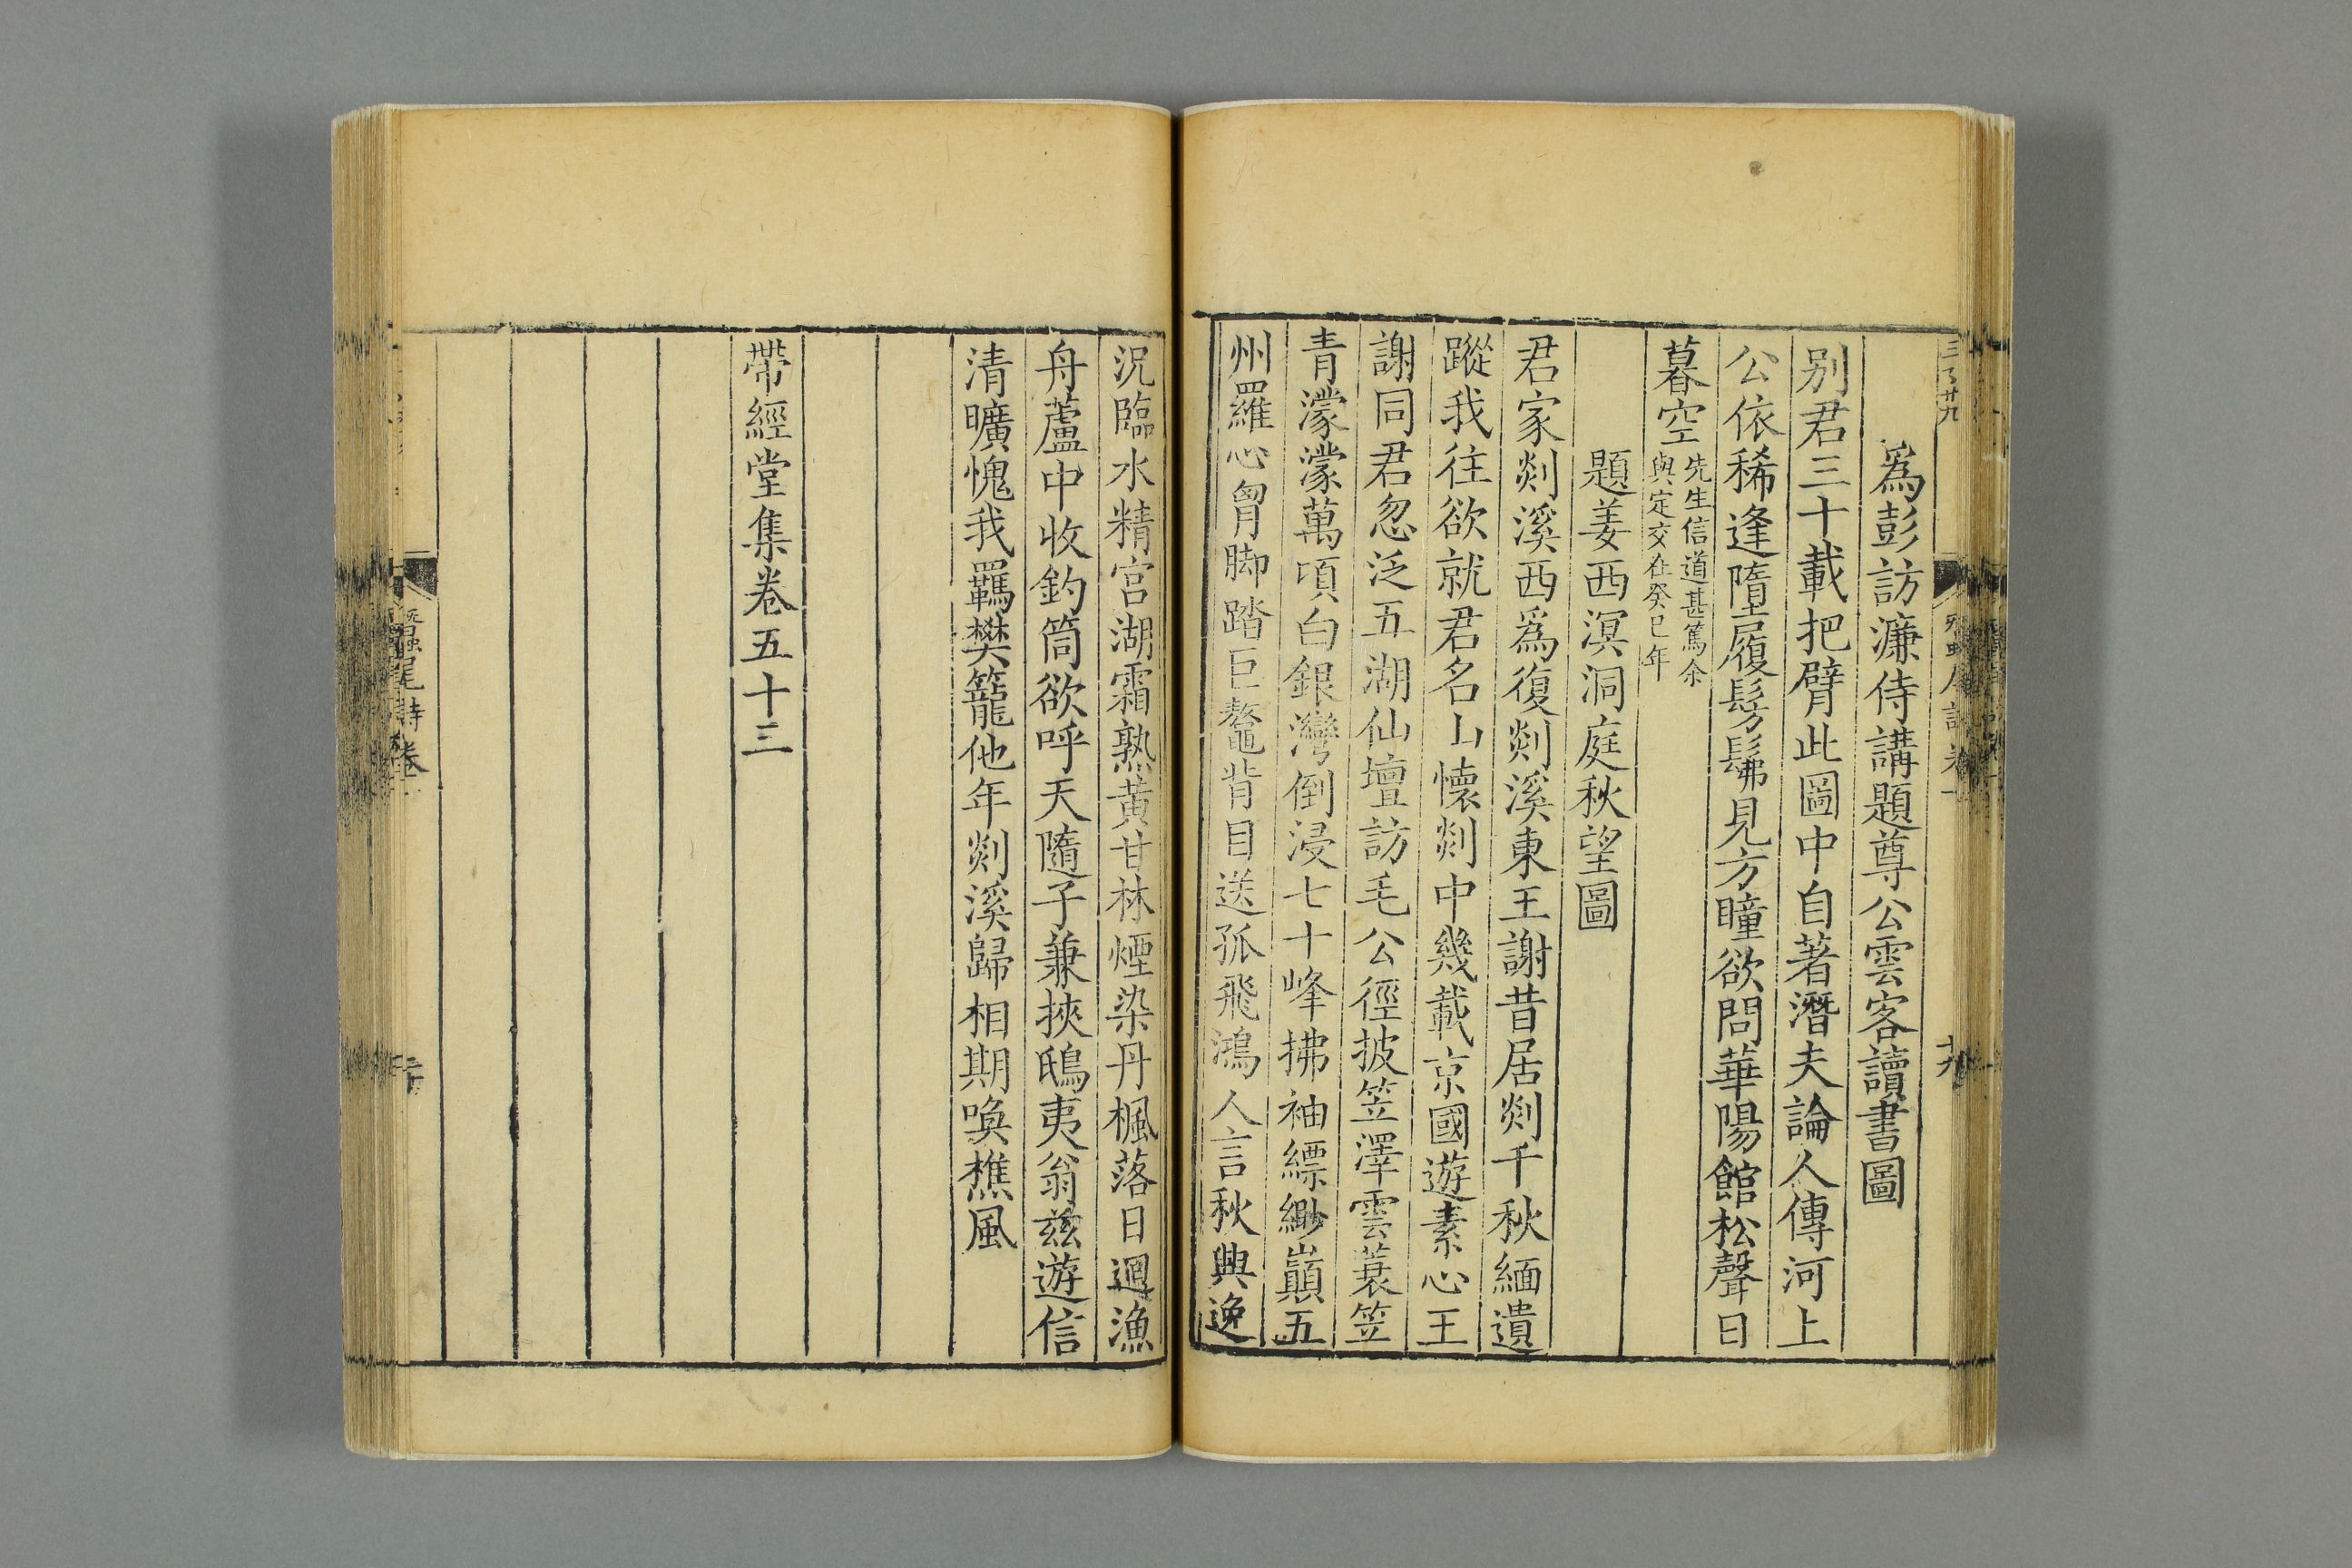 爲彭訪濓侍講題尊公雲客讀書圖
别君三十載把臂此圖中自著潛夫論人傳河上
公依稀逢墮履髣髴見方瞳欲問華陽館松聲日
暮空
先生信道甚篤余
與定交在癸巳年
題姜西溟洞庭秋望圖
君家剡溪西爲復剡溪東王謝昔居剡千秋緬遺
蹤我往欲就君名山懐剡中幾載京國遊素心王
謝同君忽泛五湖仙壇訪毛公徑披笠澤雲蓑笠
青濛濛萬頃白銀灣倒浸七十峰拂袖縹緲巔五
州羅心胷脚踏巨鼇背目送孤飛鴻人言秋興逸
况臨水精宫湖霜熟黄甘林煙染丹楓落日迴漁
舟蘆中收釣筒欲呼天隨子兼挾鴟夷翁兹遊信
清曠愧我羈樊籠他年剡溪歸相期喚樵風
帶經堂集卷五十三